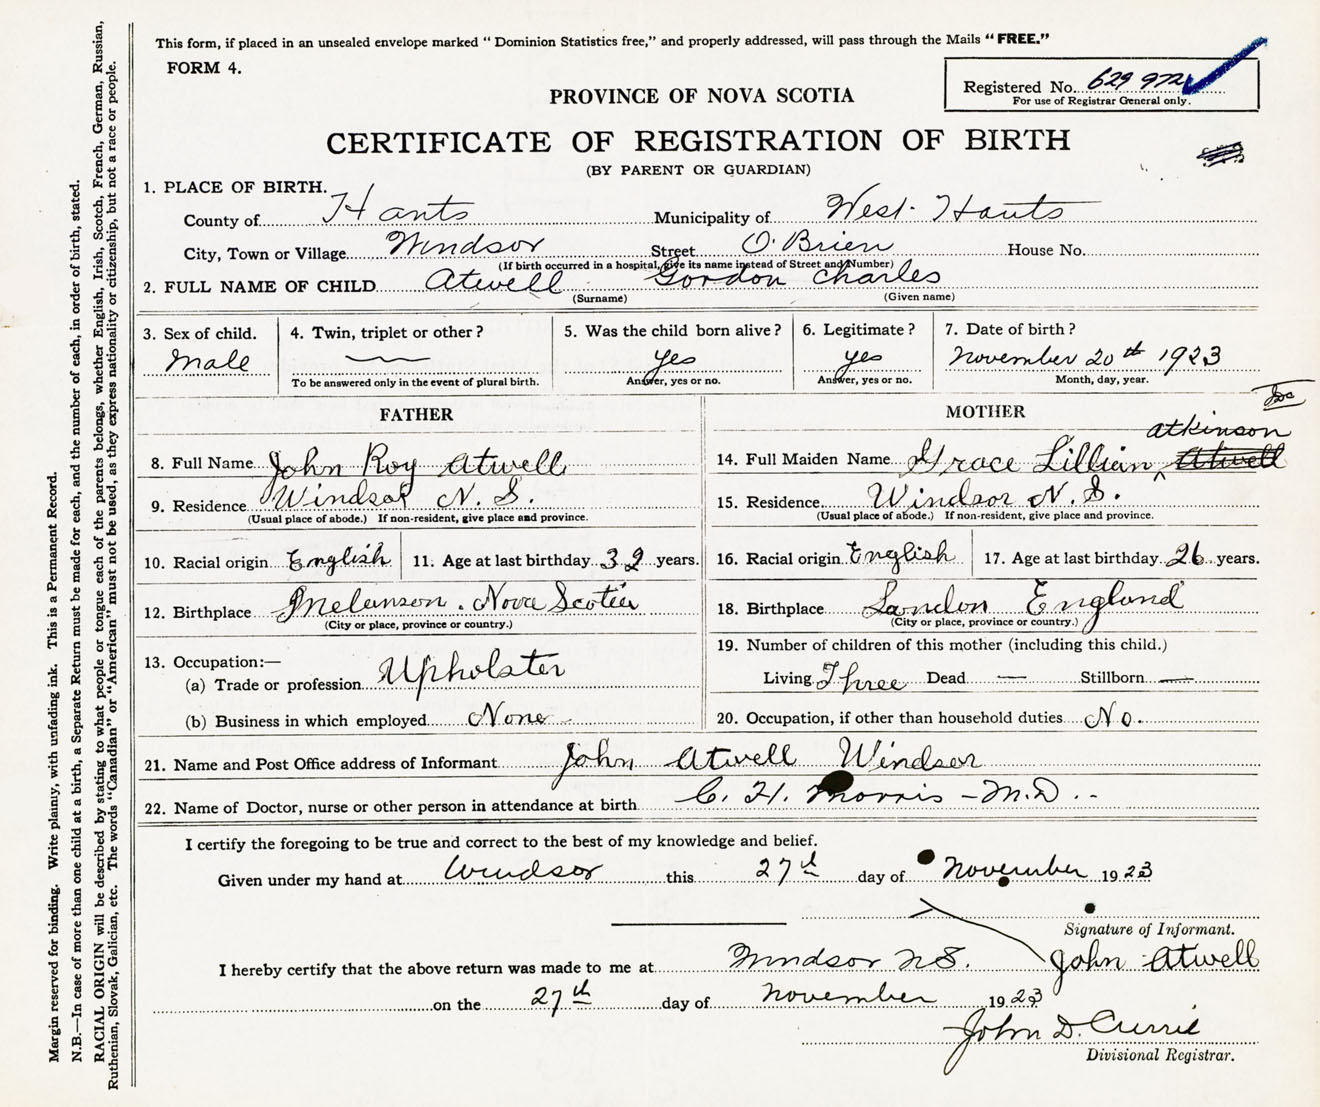 This form, if placed in an unsealed envelope marked "Dominion Statistics free," and properly addressed, will pass through the Mails "FREE."
FORM 4.
Registered No. 629 972
For use of Registrar General only.
PROVINCE OF NOVA SCOTIA
CERTIFICATE OF REGISTRATION OF BIRTH
(BY PARENT OR GUARDIAN)
1. PLACE OF BIRTH.
County of Hants Municipality of West Hants
City, Town or Village Windsor Street O'Brien House No.
(If birth occurred in a hospital, give its name instead of Street and Number)
2. FULL NAME OF CHILD Atwell Gordon Charles
(Surname) (Given name)
3. Sex of child. 4. Twin, triplet or other? 5. Was the child born alive? 6. Legitimate? 7. Date of birth?
Male — yes yes November 20th 1923
To be answered only in the event of plural birth. Answer, yes or no. Answer, yes or no. Month, day, year.
FATHER MOTHER
Atkinson
8. Full Name John Roy Atwell 14. Full Maiden Name Grace Lillian ^ Atwell
9. Residence Windsor N. S. 15. Residence Windsor N. S.
(Usual place of abode.) If non-resident, give place and province. (Usual place of abode.) If non-resident, give place and province.
10. Racial origin English 11. Age at last birthday 32 years. 16. Racial origin English 17. Age at last birthday 26 years.
12. Birthplace Melanson. Nova Scotia 18. Birthplace London England
(City or place, province or country.) (City or place, province or country.)
13. Occupation:— 19. Number of children of this mother (including this child.)
(a) Trade or profession Upholster Living Three Dead — Stillborn —
(b) Business in which employed None 20. Occupation, if other than household duties No.
21. Name and Post Office address of Informant John Atwell Windsor
22. Name of Doctor, nurse or other person in attendance at birth C. H. Morris - M.D..
I certify the foregoing to be true and correct to the best of my knowledge and belief.
Given under my hand at Windsor this 27th day of November 1923
Signature of Informant.
I hereby certify that the above return was made to me at Windsor N.S. John Atwell
on the 27th day of November 1923
John D. Currie
Divisional Registrar.
Margin reserved for binding. Write plainly, with unfading ink. This is a Permanent Record.
N.B.—In case of more than one child at a birth, a Separate Return must be made for each, and the number of each, in order of birth, stated.
RACIAL ORIGIN will be described by stating to what people or tongue each of the parents belongs, whether English, Irish, Scotch, French, German, Russian,
Ruthenian, Slovak, Galician, etc. The words "Canadian" or "American" must not be used, as they express nationality or citizenship, but not a race or people.